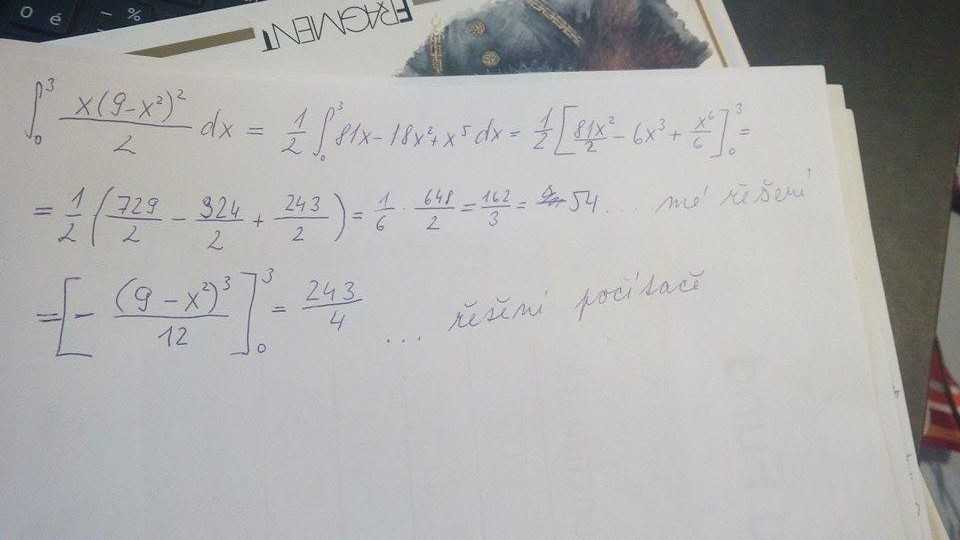 0 é – %
FRAGMENT
∫₀³ x(9-x²)²/2 dx = 1/2 ∫₀³ 81x-18x²+x⁵ dx = 1/2 [81x²/2 - 6x³ + x⁶/6]₀³ =
= 1/2 (729/2 - 324/2 + 243/2) = 1/6 · 648/2 = 162/3 = 54... mé řešení
= [- (9-x²)³/12]₀³ = 243/4 ... řešení počítače